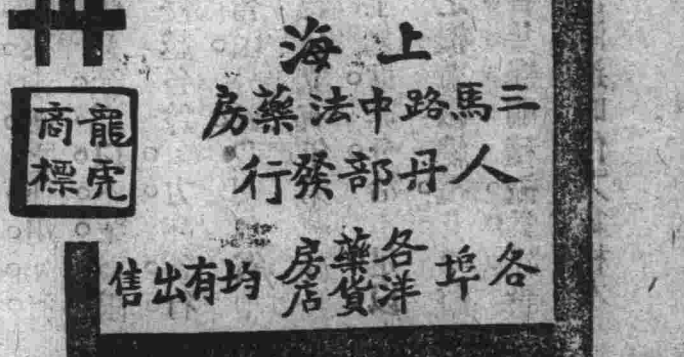 上海
三馬路中法藥房
人丹部發行
各埠各藥房洋貨店均有出售
龍虎
商標